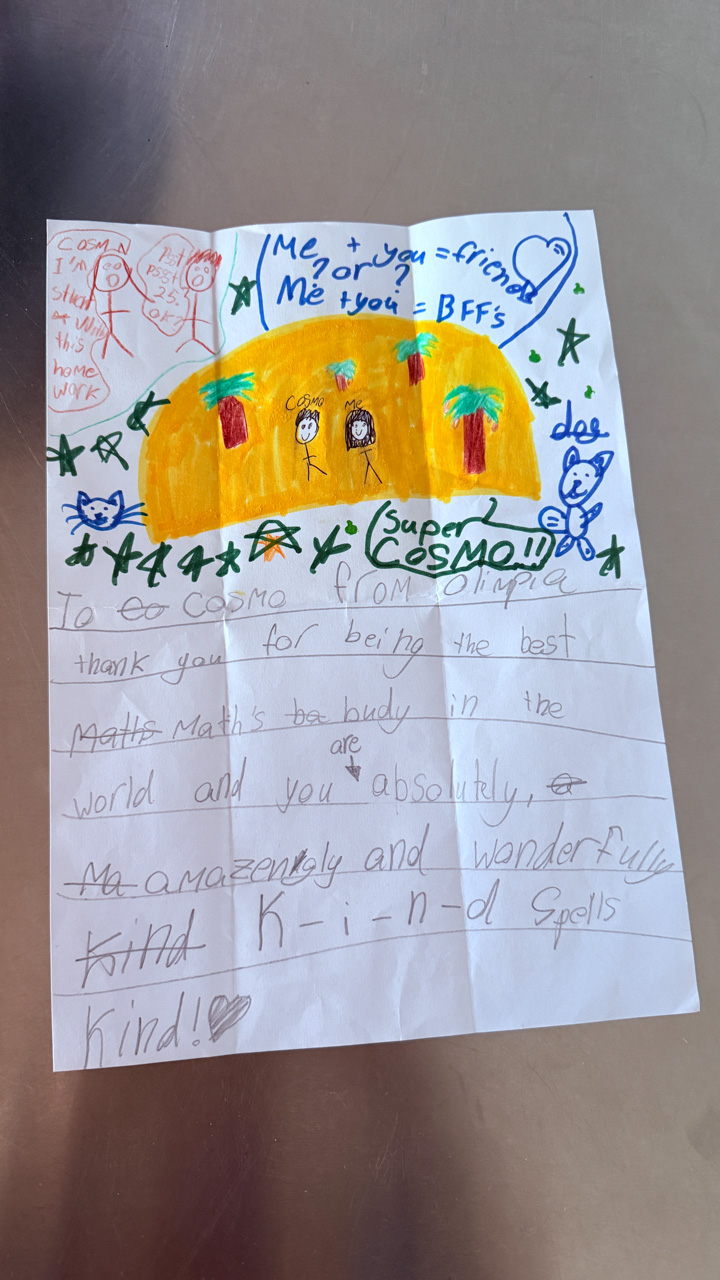 COSMO
I'm
stuk
With
this
home
work
Psst
psst
25!
OK?
Me + you = friends
? or ?
Me + you = BFF's
COSMO
Me
dog
Super
COSMO!!
To co COSMO from Olimpia
thank you for being the best
Maths Math's be budy in the
are
world and you absolutely, a
Ma amazengly and wonderfully
Kind K-i-n-d Spells
Kind!